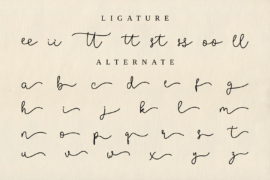 LIGATURE
ee ii tt tt st ss oo ll
ALTERNATE
a b c d e f g
h i j k l m
n o p q r s t
u v w x y z